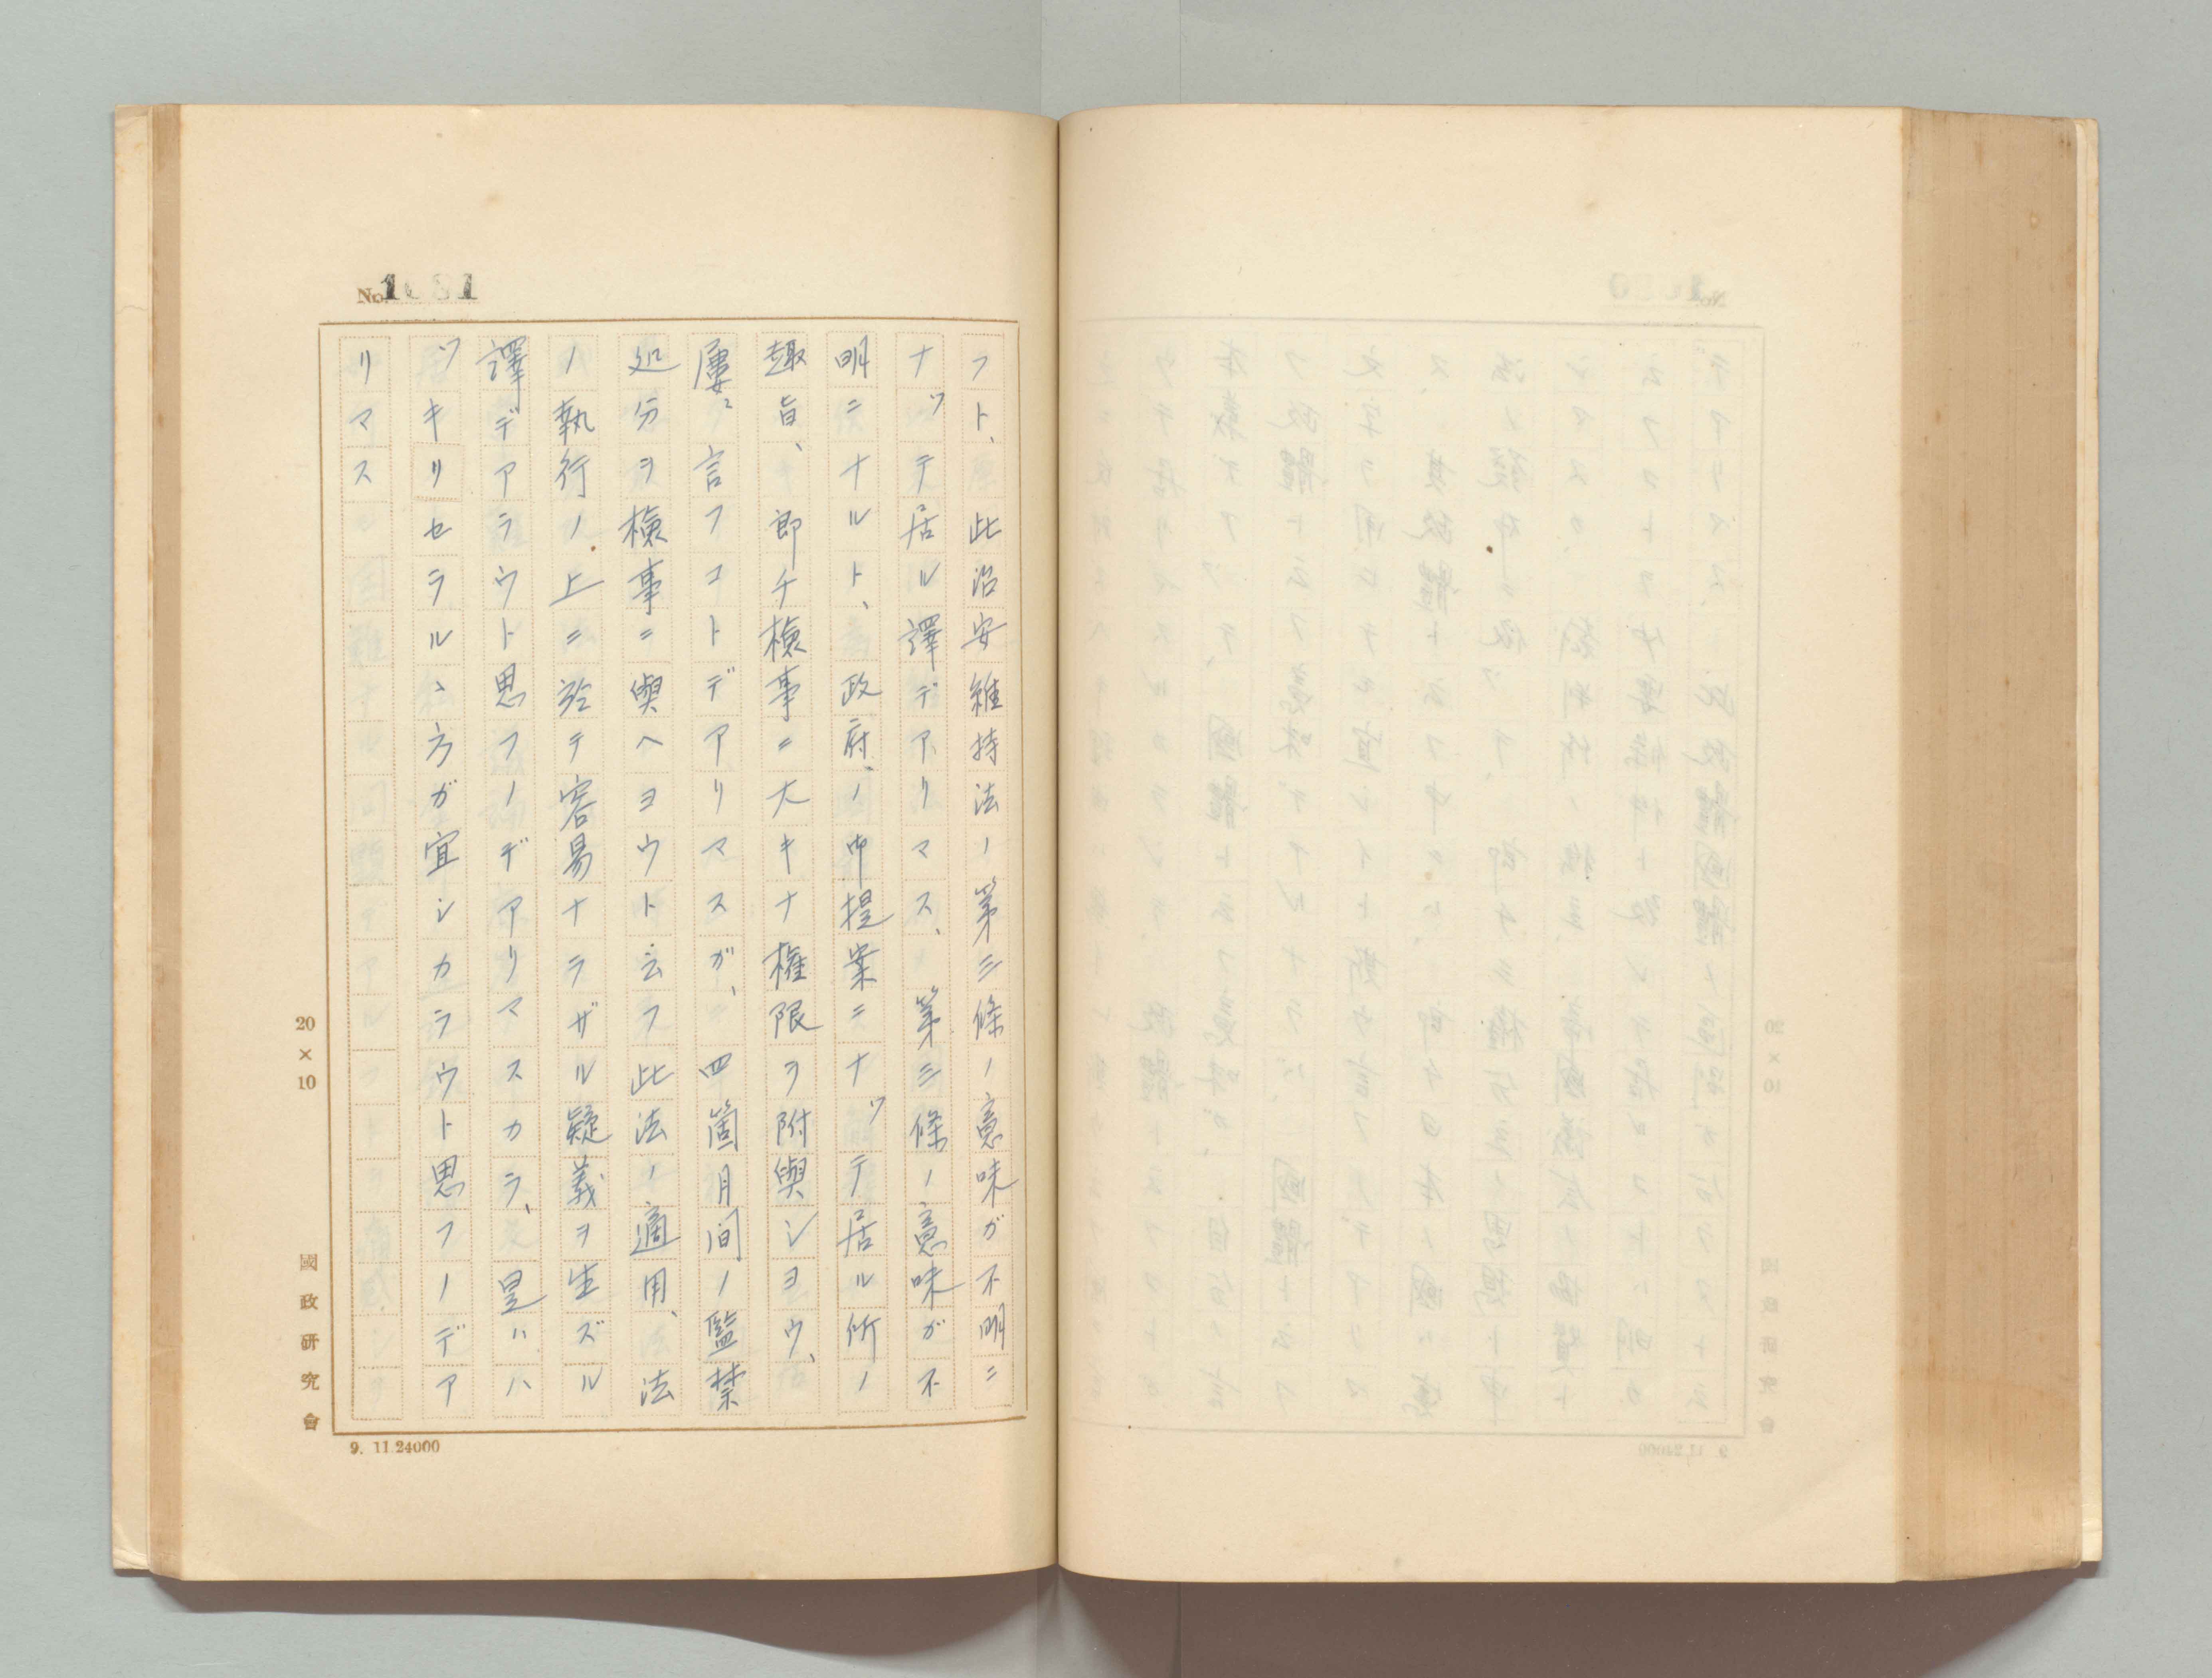 No. 1081
フト、此治安維持法ノ第三條ノ意味ガ不明ニ
ナッテ居ル譯デアリマス、第三條ノ意味ガ不
明ニナルト、政府ノ御提案ニナッテ居ル所ノ
趣旨、即チ檢事ニ大キナ權限ヲ附與シヨウ、
屢〻言フコトデアリマスガ、四箇月間ノ監禁
処分ヲ檢事ニ與ヘヨウト云フ此法ノ適用、法
ノ執行ノ上ニ於テ容易ナラザル疑義ヲ生ズル
譯デアラウト思フノデアリマスカラ、是ハハ
ッキリセラルヽ方ガ宜シカラウト思フノデア
リマス
20×10
國政研究會
9. 11.24000